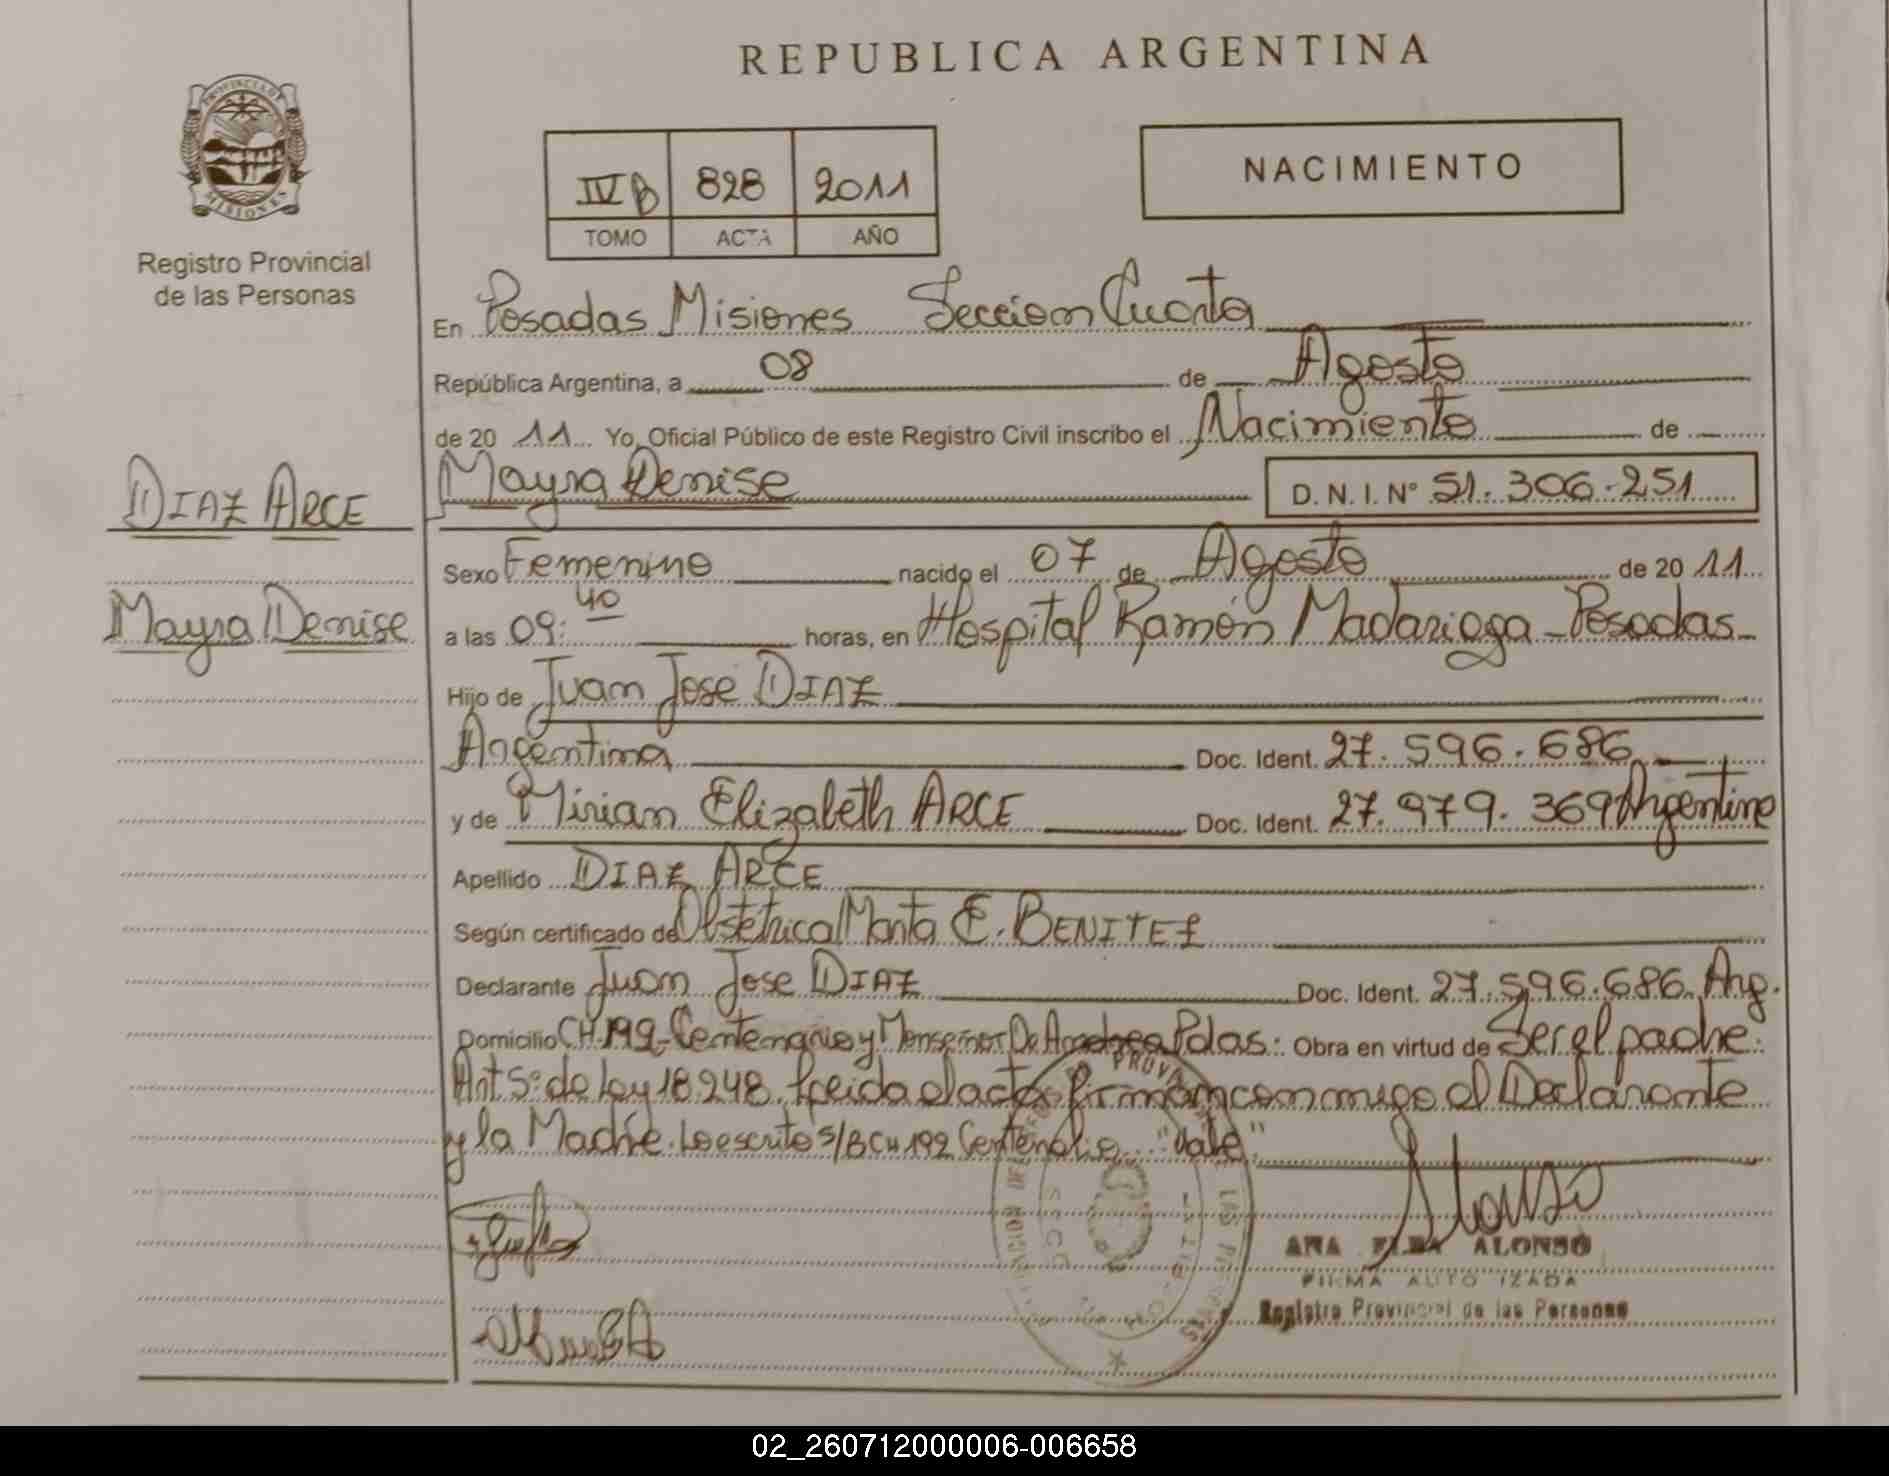 REPUBLICA ARGENTINA
PROVINCIA DE
MISIONES
Registro Provincial
de las Personas
IVB 828 2011
TOMO ACTA AÑO
NACIMIENTO
En Posadas Misiones Seccion Cuarta
República Argentina, a 08 de Agosto
de 20 11 Yo, Oficial Público de este Registro Civil inscribo el Nacimiento de
Mayra Denise D. N. I. N° 51.306.251
DIAZ ARCE
Mayra Denise
Sexo Femenino nacido el 07 de Agosto de 20 11
a las 09:40 horas, en Hospital Ramón Madariaga - Posadas
Hijo de Juan Jose DIAZ
Argentina Doc. Ident. 27.596.686
y de Mirian Elizabeth ARCE Doc. Ident. 27.979.369 Argentina
Apellido DIAZ ARCE
Según certificado de Obstetrica Marta E. BENITEZ
Declarante Juan Jose DIAZ Doc. Ident. 27.596.686. Arg.
Domicilio CH-192-Centenario y Monseñor De Andrea Pdas: Obra en virtud de Ser el padre.
Art 5° de Ley 18.248. Leida el acta firman conmigo el Declarante
y la Madre. Lo escrito S/B CH 192 Centenario "Vale"
ANA ELBA ALONSO
FIRMA AUTORIZADA
Registro Provincial de las Personas
02_260712000006-006658